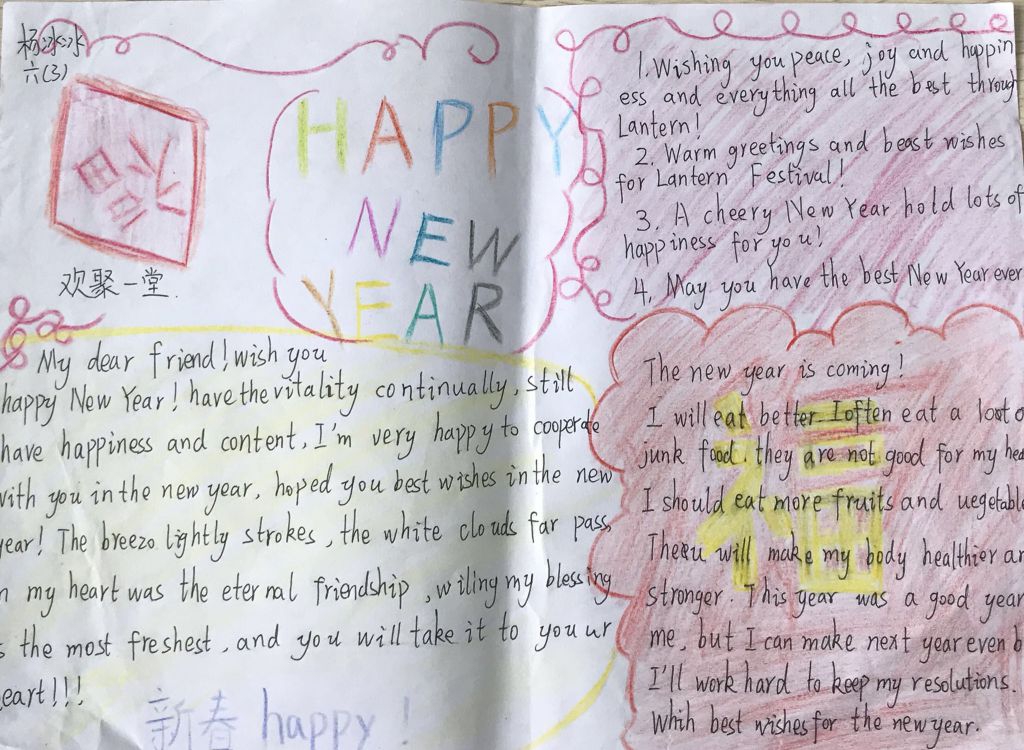 杨冰冰
六(3)
欢聚一堂.
HAPPY
NEW
YEAR
My dear friend! wish you
happy New Year! have the vitality continually, still
have happiness and content, I'm very happy to cooperate
with you in the new year, hoped you best wishes in the new
year! The breezo lightly strokes, the white clouds far pass,
n my heart was the eternal friendship, wiling my blessing
s the most freshest, and you will take it to you ur
eart!!!
新春 happy!
1. Wishing you peace, joy and happin
ess and everything all the best throug
Lantern!
2. Warm greetings and beast wishes
for Lantern Festival!
3. A cheery New Year hold lots of
happiness for you!
4. May you have the best New Year ever
The new year is coming!
I will eat better. I often eat a loot o
junk food. they are not good for my hea
I should eat more fruits and uegetable
Theeu will make my body healthier an
stronger. This year was a good year
me, but I can make next year even b
I'll work hard to keep my resolutions.
Whih best wishes for the new year.
福